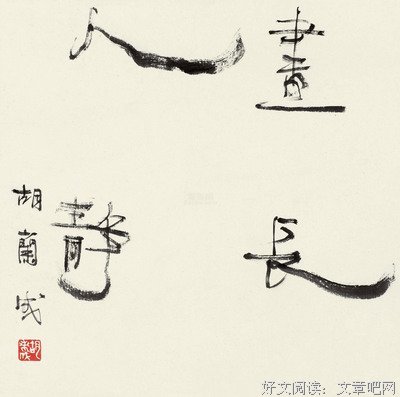 晝長
人靜
胡蘭成
好文阅读：文章吧网